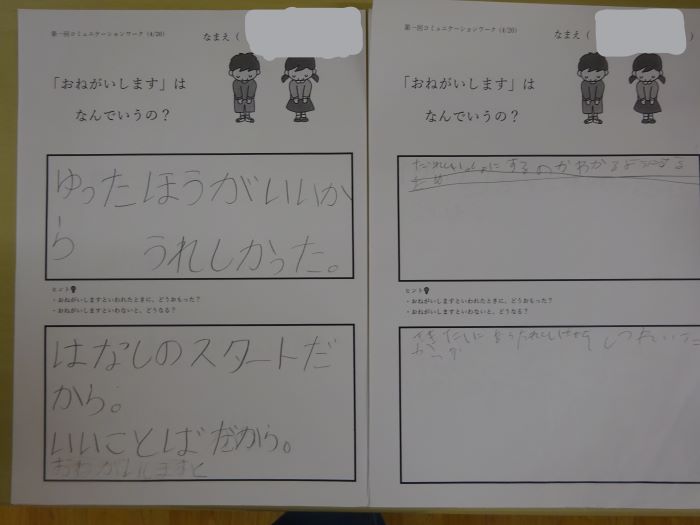 第一回コミュニケーションワーク (4/26)
なまえ (
「おねがいします」は
なんでいうの？
ゆったほうがいいか
ら うれしかった。
ヒント
・おねがいしますといわれたときに、どうおもった？
・おねがいしますといわないと、どうなる？
はなしのスタートだ
から。
いいことばだから。
おねがいしますと
第一回コミュニケーションワーク (4/26)
なまえ ( )
「おねがいします」は
なんでいうの？
だれといっしょにするのかわかるようにする
ため
ヒント
・おねがいしますといわれたときに、どうおもった？
・おねがいしますといわないと、どうなる？